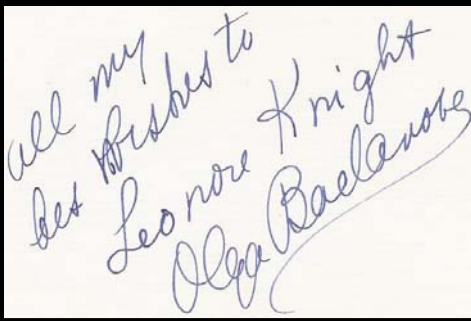 all my
bes wishes to
Leonore Knight
Olga Baclanova